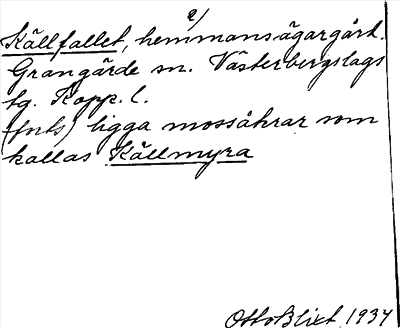 2/
Källfallet, hemmansägargård.
Grangärde sn. Västerbergslags
tg. Kopp. l.
ligga mossåkrar som
kallas Källmyra
Otto Blixt, 1934